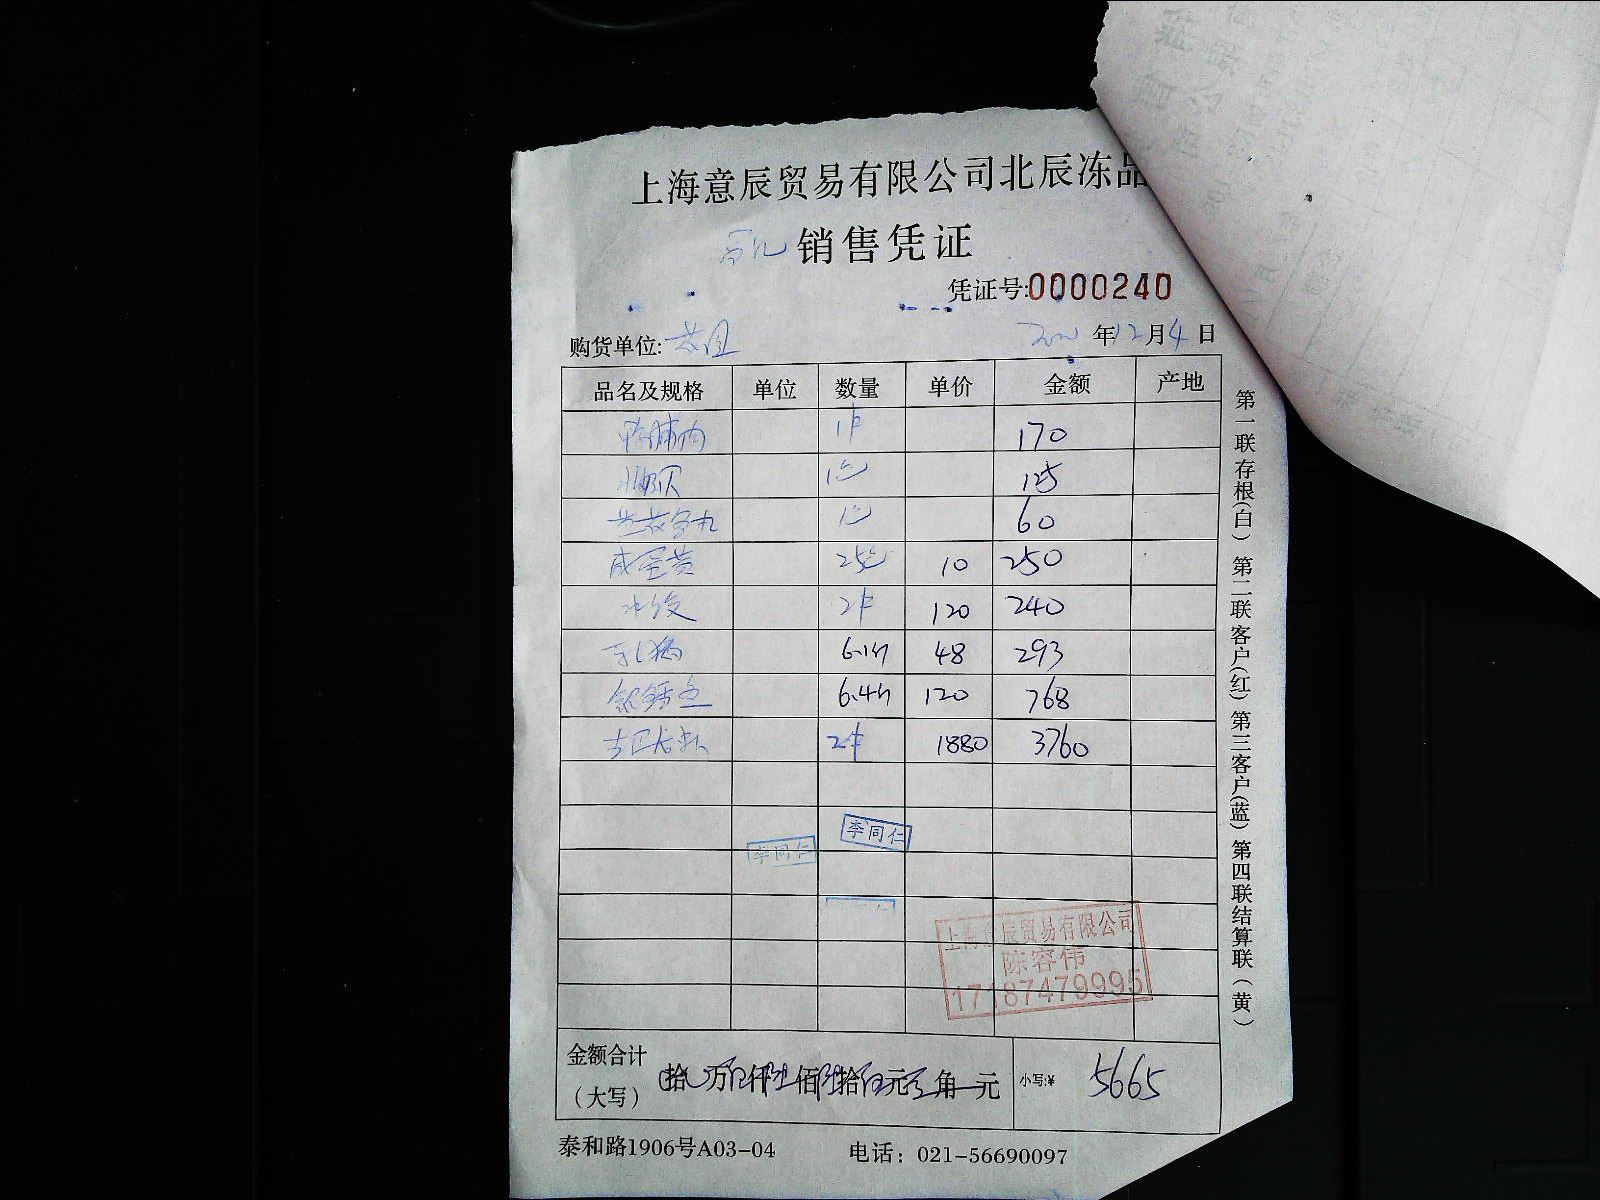 上海意辰贸易有限公司北辰冻品
销售凭证
凭证号:0000240
购货单位: 年12月4日
品名及规格 单位 数量 单价 金额 产地
1 170
1包 125
1包 60
咸蛋黄 25包 10 250
水饺 2 120 240
乳鸽 6.1 48 293
银鳕鱼 6.4 120 768
古巴龙虾 2 1880 3760
李同仁
李同仁
上海意辰贸易有限公司
陈容伟
17187479995
金额合计
(大写) 拾 万 仟 佰 拾 元 角 元 小写:¥ 5665
泰和路1906号A03-04 电话：021-56690097
第一联存根(白) 第二联客户(红) 第三客户(蓝) 第四联结算联(黄)